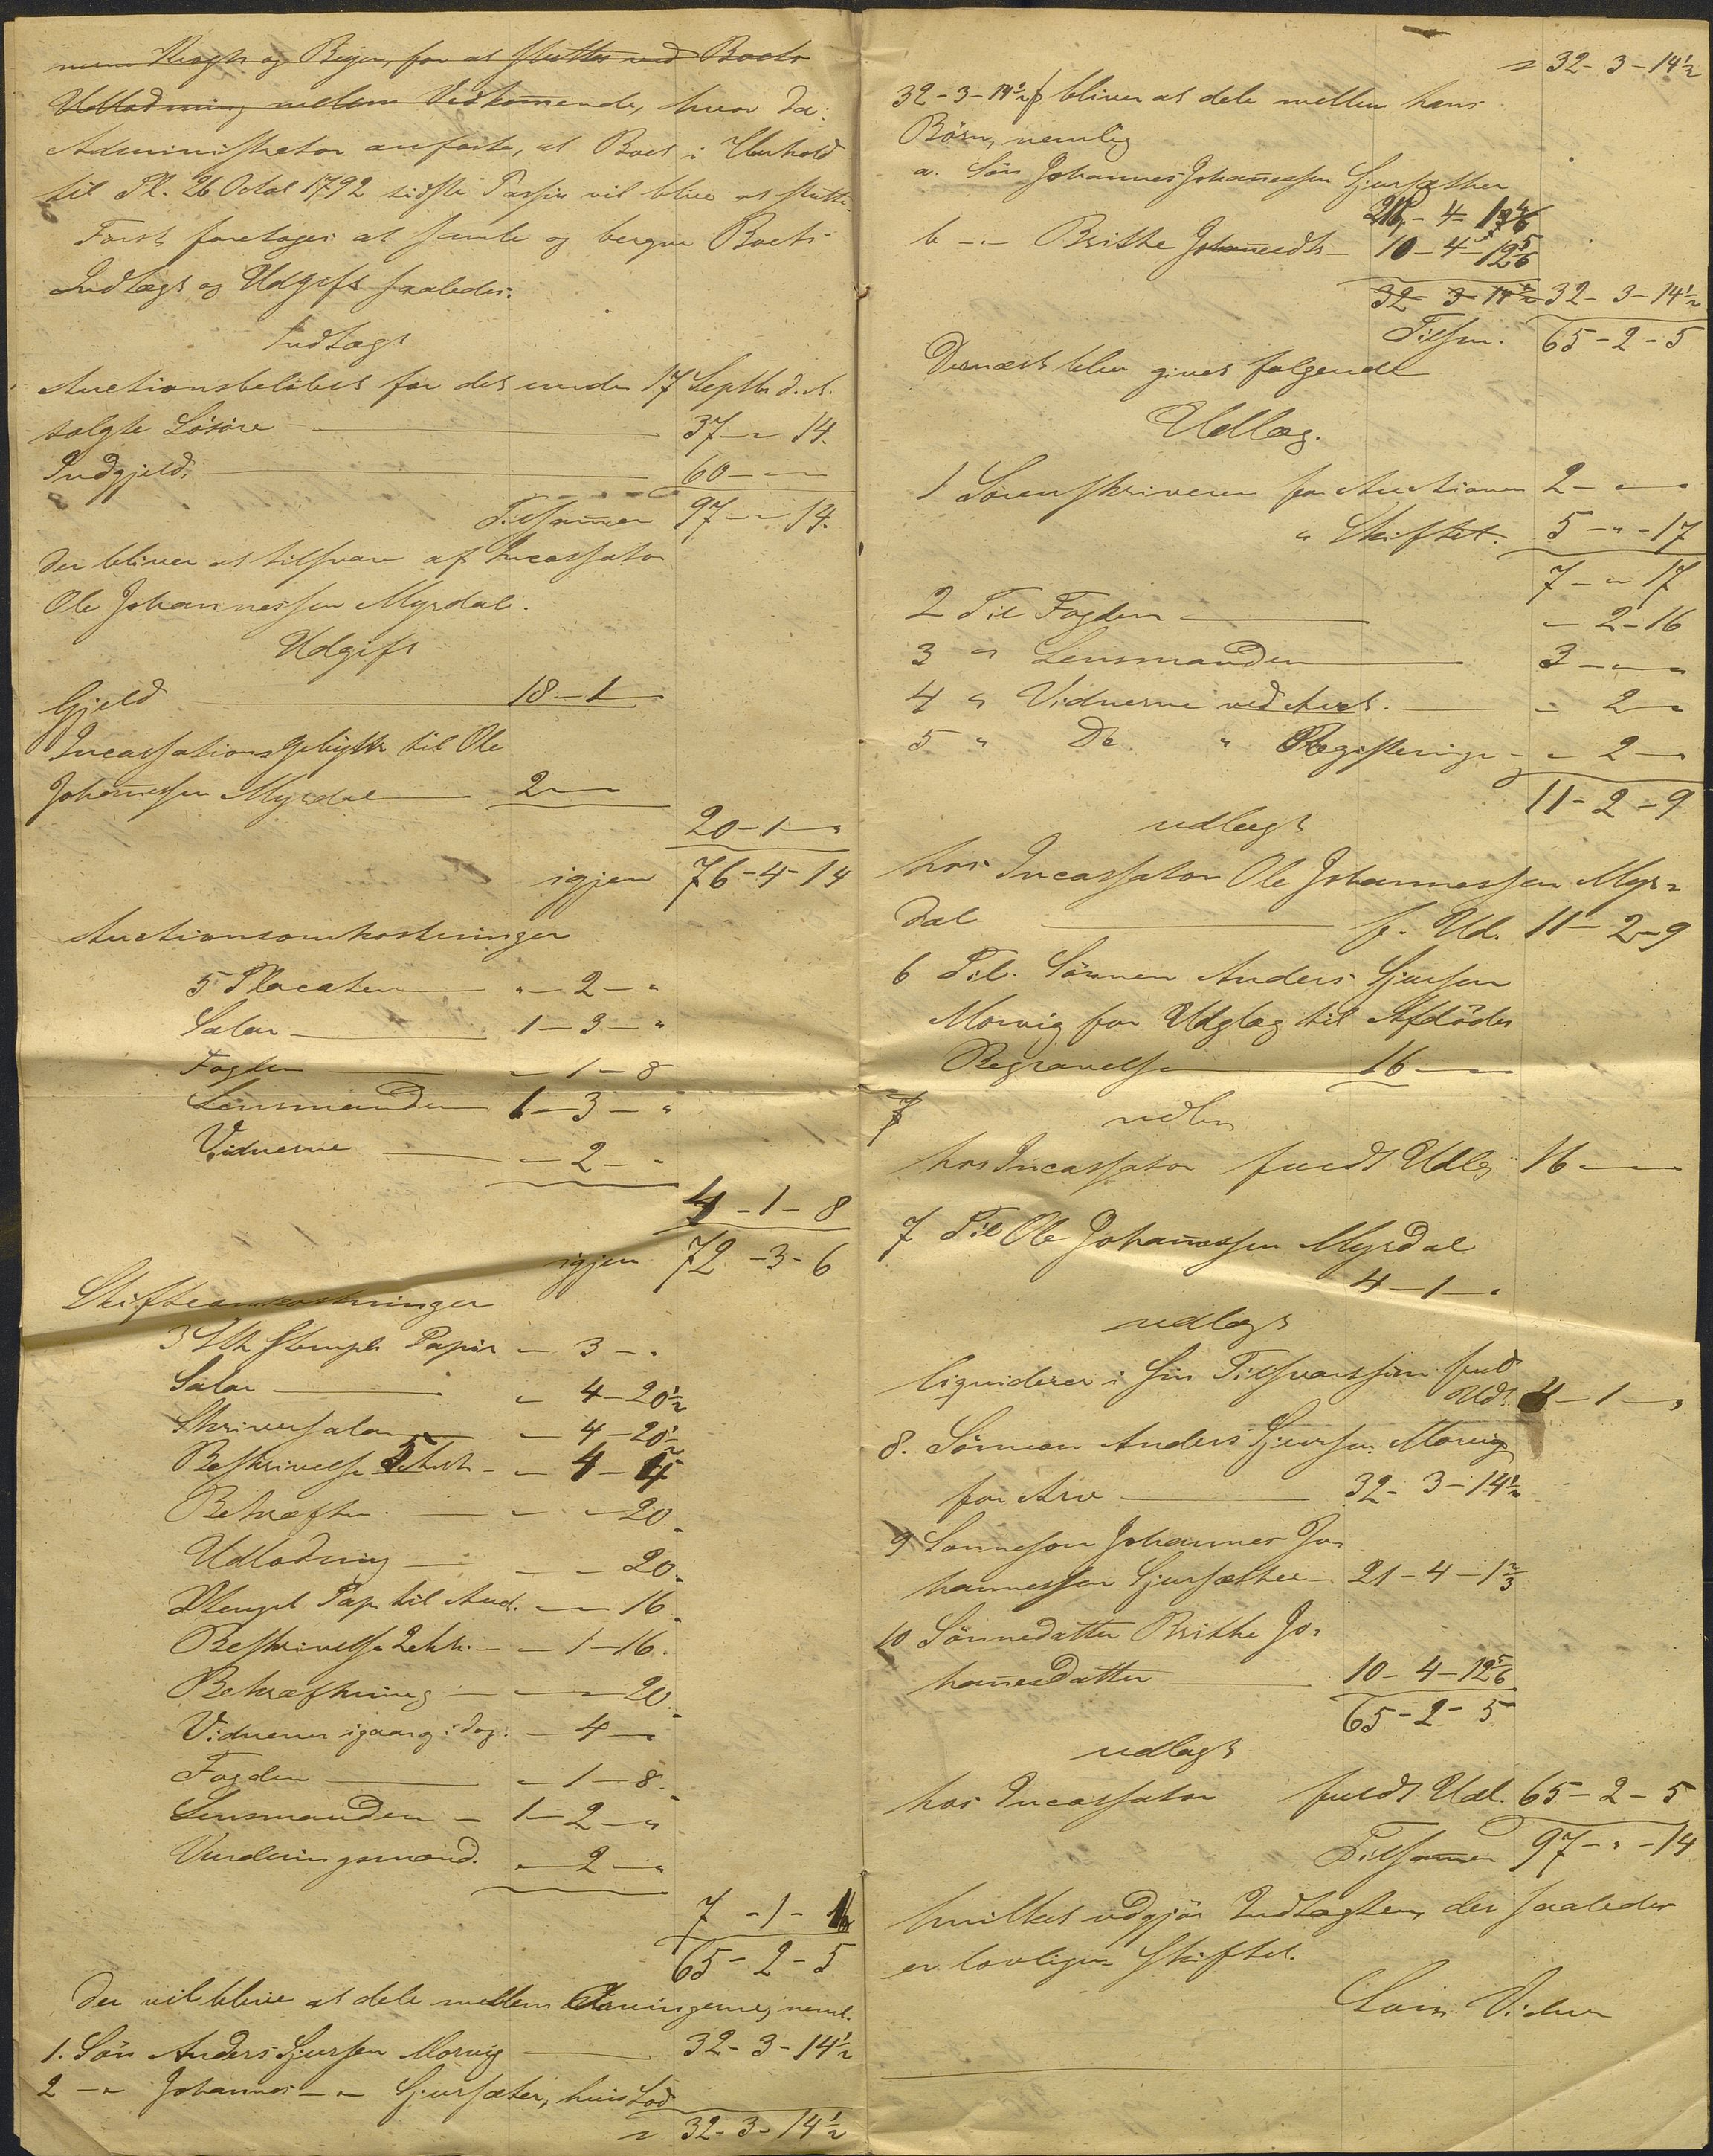 Krogh og Beyer, for at slutte med Boets
Udlodning mellem Vedkommende, hvor da:
Administrator anførte, at Boet i Henhold
til Pl. 26 Octob 1792 sidste Passus vil blive at slutte.
Først foretoges at samle og beregne Boets
Indtægt og Udgift saaledes:
Indtægt
Auctionsbeløbet for det under 17 Septbr d. A.
solgte Løsøre 37 - " 14.
Indgjeld. 60 - "
Tilsammen 97 - " 14.
der bliver at tilsvare af Incassator
Ole Johannessen Myrdal.
Udgift
Gjeld 18 - 1 - "
Incassationsgebyhr til Ole
Johannessen Myrdal 2 - "
20 - 1 - "
igjen 76 - 4 - 14
Auctionsomkostninger
5 Placater " - 2 - "
Salær 1 - 3 - "
Fogden " - 1 - 8
Lensmanden 1 - 3 - "
Vidnerne " - 2 - "
4 - 1 - 8
igjen 72 - 3 - 6
Skifteomkostninger
3 Stk stempl. Papir " 3 - "
Salar " 4 - 20½
Skriversalær " 4 - 20½
Beskrivelse 5 Ark " 4 - 4
Bekræftn. " - " 20
Udlodning " - " 20
Stempl. Pap. til Auct. " - " 16
Beskrivelse 2 Ark. " - 1 - 16.
Bekræftning " - " 20
Vidnerne igaar og idag. " 4 - "
Fogden " - 1 - 8.
Lensmanden 1 - 2 - "
Vurderingsmænd. " - 2 - "
7 - 1 -
65 - 2 - 5
der vil blive at dele mellem Arvingerne, neml.
1. Søn Anders Sjursen Morvig 32 - 3 - 14½
2 - " Johannes - " - Gjersæter, hvis Lod
" 32 - 3 - 14½
" 32 - 3 - 14½
32 - 3 - 14½ β bliver at dele mellem hans
Børn, nemlig
a. Søn Johannes Johannessen Gjersæther
21 - 4 - 1 4/6
b - " - Brithe Johannesdtr 10 - 4 - 12 5/6
32 - 3 - 14½ 32 - 3 - 14½
Tilsm. 65 - 2 - 5
Dernæst blev givet følgende
Udlæg.
1 Sorenskriveren for Auctionen 2 - " - "
" Skiftet. 5 - " - 17
7 - " 17
2 Til Fogden " 2 - 16
3 " Lensmanden 3 - " - "
4 " Vidnerne ved Auct. " 2 - "
5 " Do. " Registering " 2 - "
11 - 2 - 9
udlagt
hos Incassator Ole Johannessen Myr-
dal f. Ud. 11 - 2 - 9
6 Til Sønnen Anders Sjursen
Morvig for Udglæg til Afdødes
Begravelse 16 - "
7 udlæg
hos Incassator fuldt Udlæg 16 - "
7 Til Ole Johannessen Myrdal
4 - 1 - "
udlagt
liquiderer i sin Tilsvarssum fuld
Ud. 4 - 1 - "
8. Sønnen Anders Sjursen Morvig
for Arv 32 - 3 - 14½
9 Sønneson Johannes Jo-
hannessen Gjersæther 21 - 4 - 1⅔
10 Sønnedatter Brithe Jo-
hannesdatter 10 - 4 - 12 5/6
65 - 2 - 5
udlagt
hos Incassator fuldt Udl. 65 - 2 - 5
Tilsammen 97 - " - 14
hvilket udgjør Indtægten, der saaledes
er lovligen skiftet.
Vidner